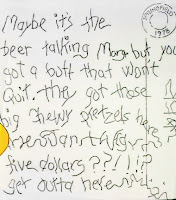 Maybe it's the
beer talking Marge but you
got a butt that won't
quit. they got those
big chewy pretzels here
five dollars??!!!?
get outta here
SPRINGFIELD
1976